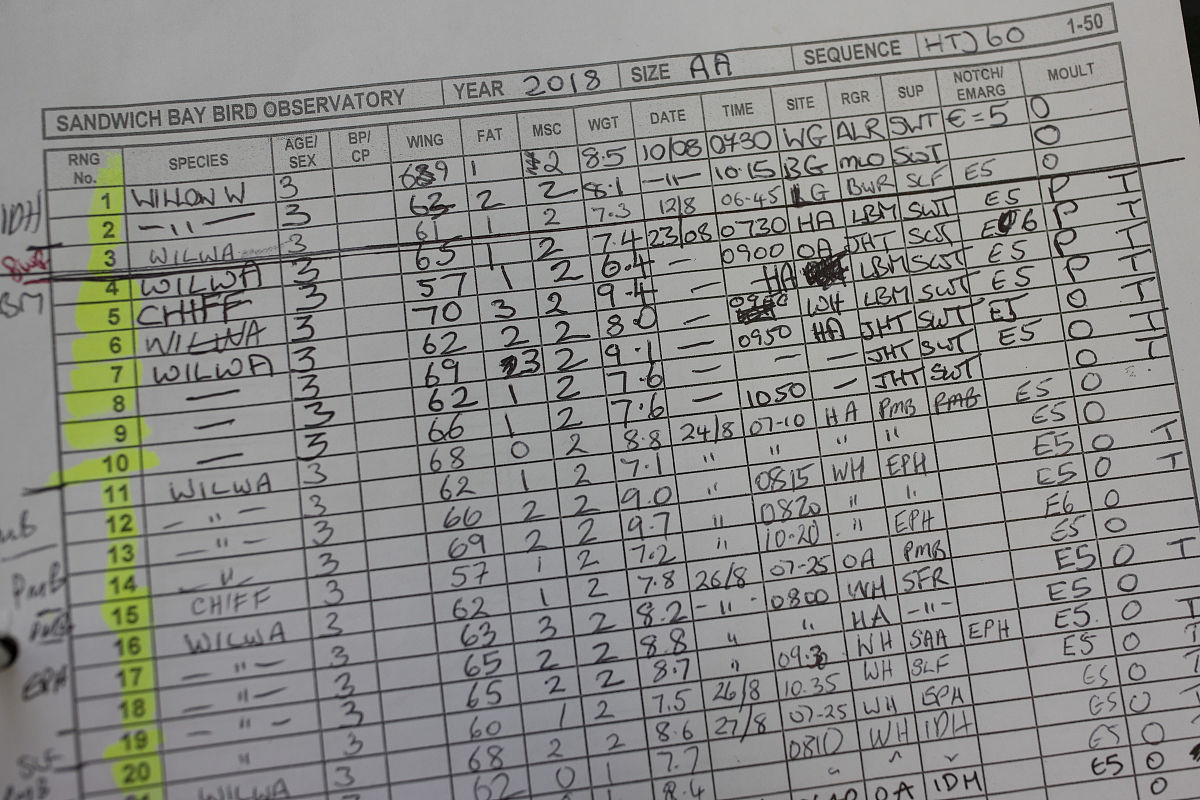 SANDWICH BAY BIRD OBSERVATORY YEAR 2018 SIZE AA SEQUENCE HTJ60 1-50
RNG No. SPECIES AGE/SEX BP/CP WING FAT MSC WGT DATE TIME SITE RGR SUP NOTCH/EMARG MOULT
IDH 1 WILLOW W 3 689 1 2 8.5 10/08 0730 WG ALR SWT €=5 0
2 —"— 3 63 2 2 8.1 —"— 10.15 BG MLO SWT 0
BWR 3 WILWA 3 61 1 2 7.3 12/8 06-45 LG BWR SLF E5 0
BM 4 WILWA 3 65 1 2 7.4 23/08 0730 HA LBM SWT E5 P T
5 CHIFF 3 57 1 2 6.4 — 0900 OA JHT SWT E6 P T
6 WILWA 3 70 3 2 9.4 — HA LBM SWT E5 P T
7 WILWA 3 62 2 2 8.0 — WH LBM SWT E5 P T
8 — 3 69 3 2 9.1 — 0950 HA JHT SWT E5 0 T
9 — 3 62 1 2 7.6 — — — JHT SWT E5 0
10 — 3 66 1 2 7.6 — 1050 — JHT SWT 0 T
11 WILWA 3 68 0 2 8.8 24/8 07-10 HA PMB PMB E5 0
12 —"— 3 62 1 2 7.1 " " " " E5 0
13 —"— 3 66 2 2 9.0 " 0815 WH EPH E5 0 T
PMB 14 —"— 3 69 2 2 9.7 " 0820 " " E5 0 T
15 CHIFF 3 57 1 2 7.2 " 10-20 " EPH E6 0
16 WILWA 3 62 1 2 7.8 26/8 07-25 OA PMB E5 0
EPH 17 —"— 3 63 3 2 8.2 -"- 0800 WH SFR E5 0 T
18 —"— 3 65 2 2 8.8 " " HA -"- E5 0
19 —"— 3 65 2 2 8.7 " 09.30 WH SAA EPH E5. 0 T
SLF 20 " 3 60 1 2 7.5 26/8 10.35 WH SLF E5 0
PMB 21 WILWA 3 68 2 2 8.6 27/8 07-25 WH EPH E5 0 T
62 0 1 7.7 0810 WH IDH E5 0
8.4 OA IDH E5 0